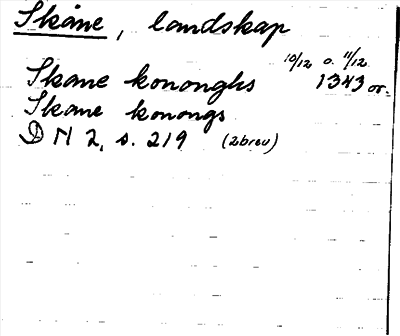 Skåne, landskap
10/12 o. 11/12
Skane kononghs 1343 or.
Skane konongs
DN 2, s. 219 (2brev)